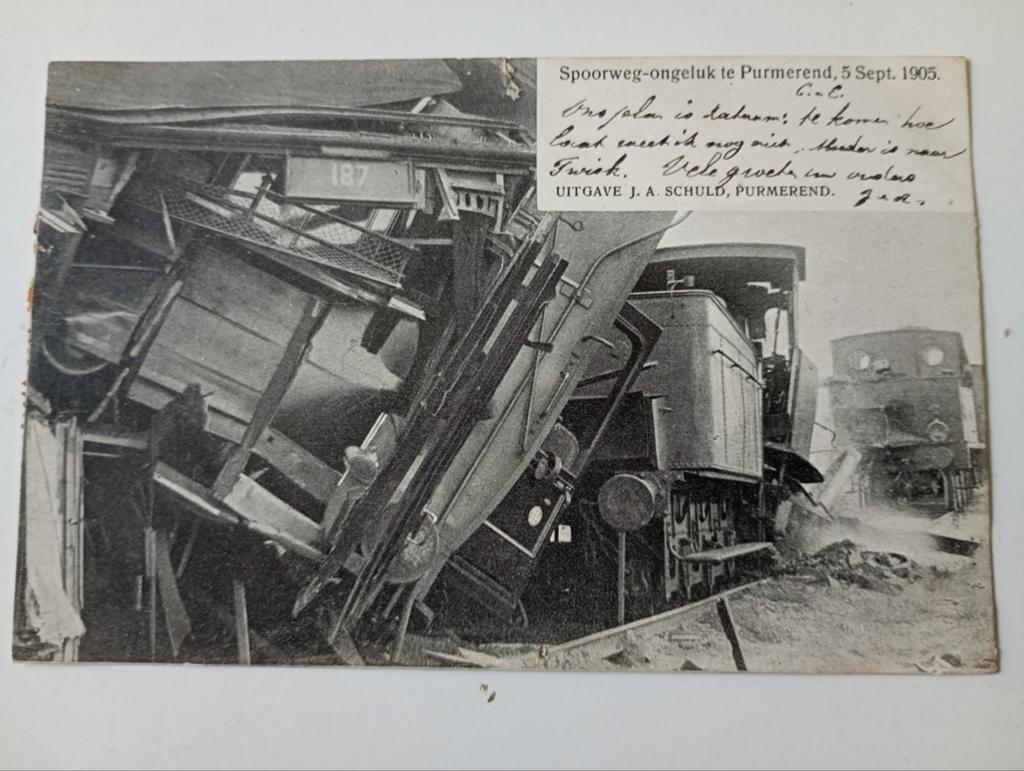 Spoorweg-ongeluk te Purmerend, 5 Sept. 1905.
C. & E.
Ons plan is Zaturdag te komen hoe
laat weet ik nog niet, Moeder is naar
Twisk. Vele groeten van
UITGAVE J. A. SCHULD, PURMEREND.
187